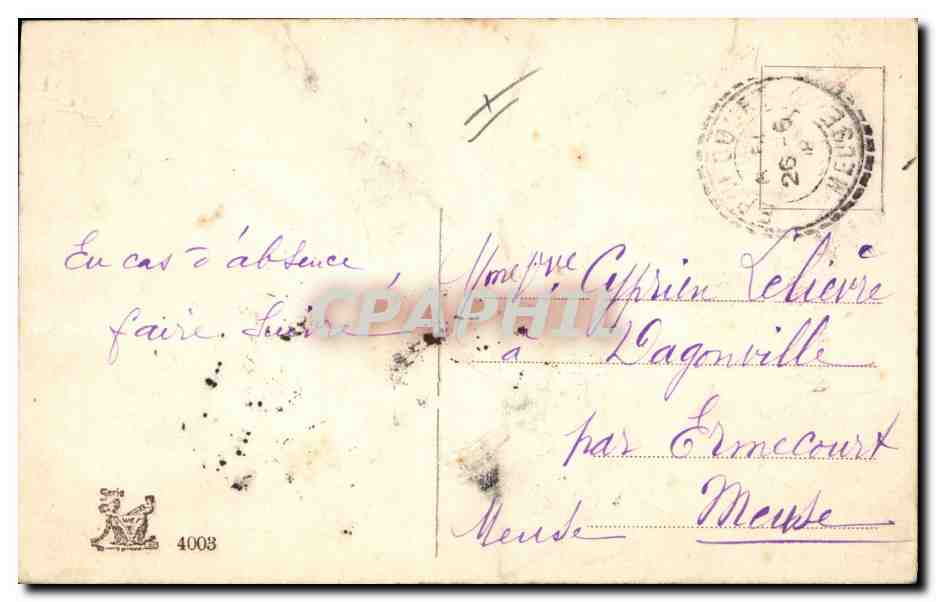 MEUSE
26 -5
En cas d'absence
faire suivre
Mme Vve Cyprien Lelièvre
à Dagonville
par Ermecourt
Meuse Meuse
CPAPHIL
Serie
4003